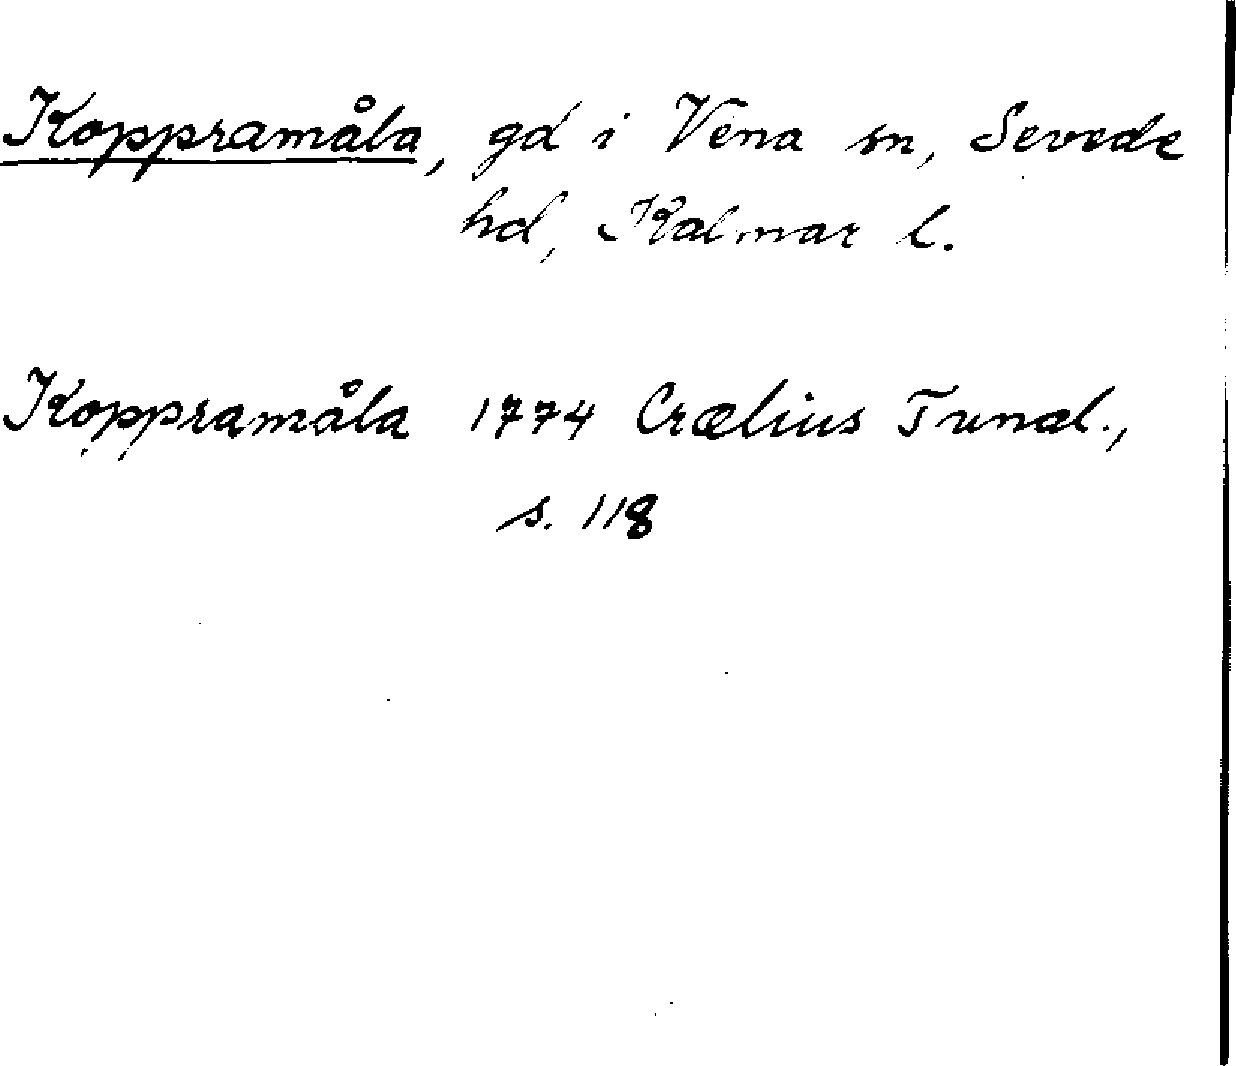 Koppramåla, gd i Vena sn, Sevede
hd, Kalmar l.
Koppramåla 1774 Crælius Tunal.,
s. 118